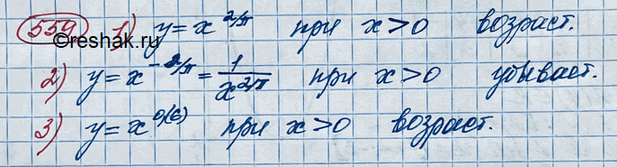 559 1) y = x^{2/π} при x > 0 возраст.
©reshak.ru
2) y = x^{-2/π} = 1/x^{2/π} при x > 0 убывает.
3) y = x^{0,(6)} при x > 0 возраст.